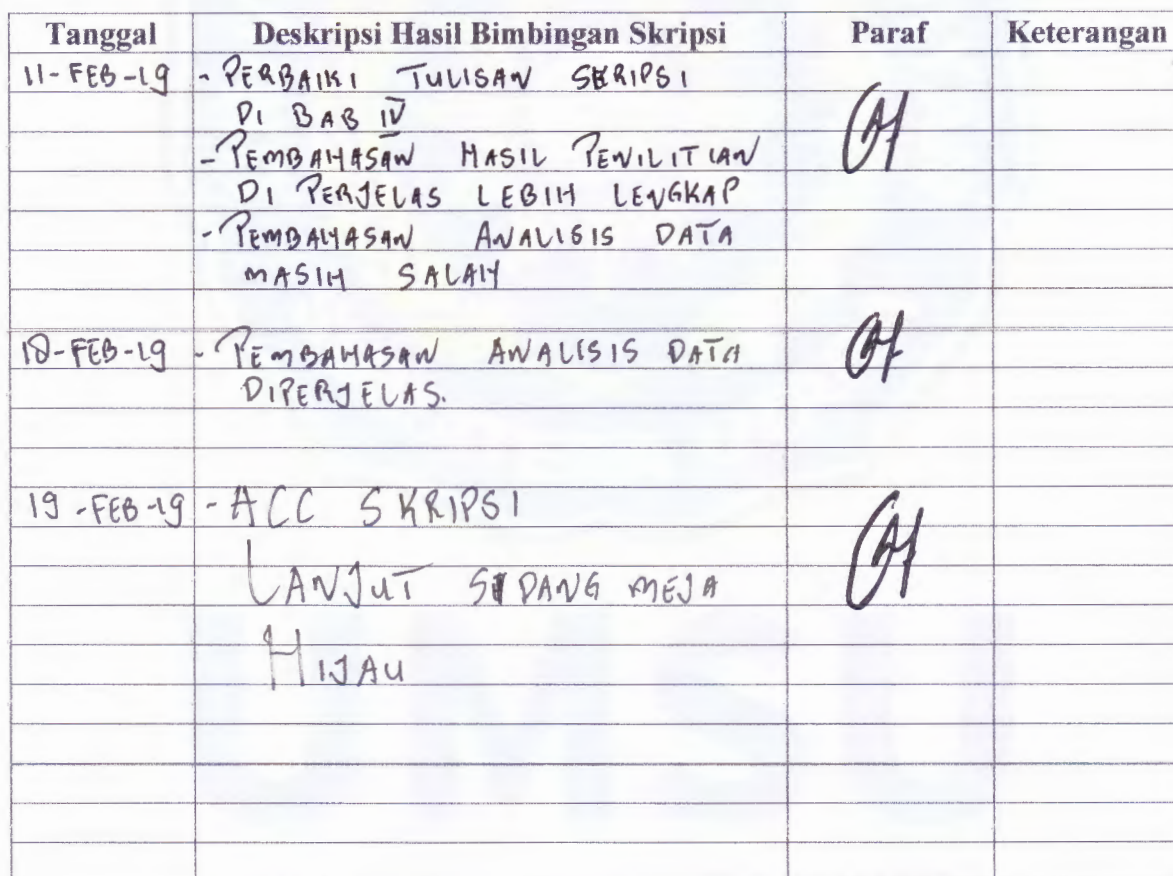 Tanggal Deskripsi Hasil Bimbingan Skripsi Paraf Keterangan
11-FEB-19 - PERBAIKI TULISAN SKRIPSI
DI BAB IV
- PEMBAHASAN HASIL PENILITIAN
DI PERJELAS LEBIH LENGKAP
- PEMBAHASAN ANALISIS DATA
MASIH SALAH
18-FEB-19 - PEMBAHASAN ANALISIS DATA
DIPERJELAS.
19-FEB-19 - ACC SKRIPSI
LANJUT SIDANG MEJA
HIJAU
UMSU